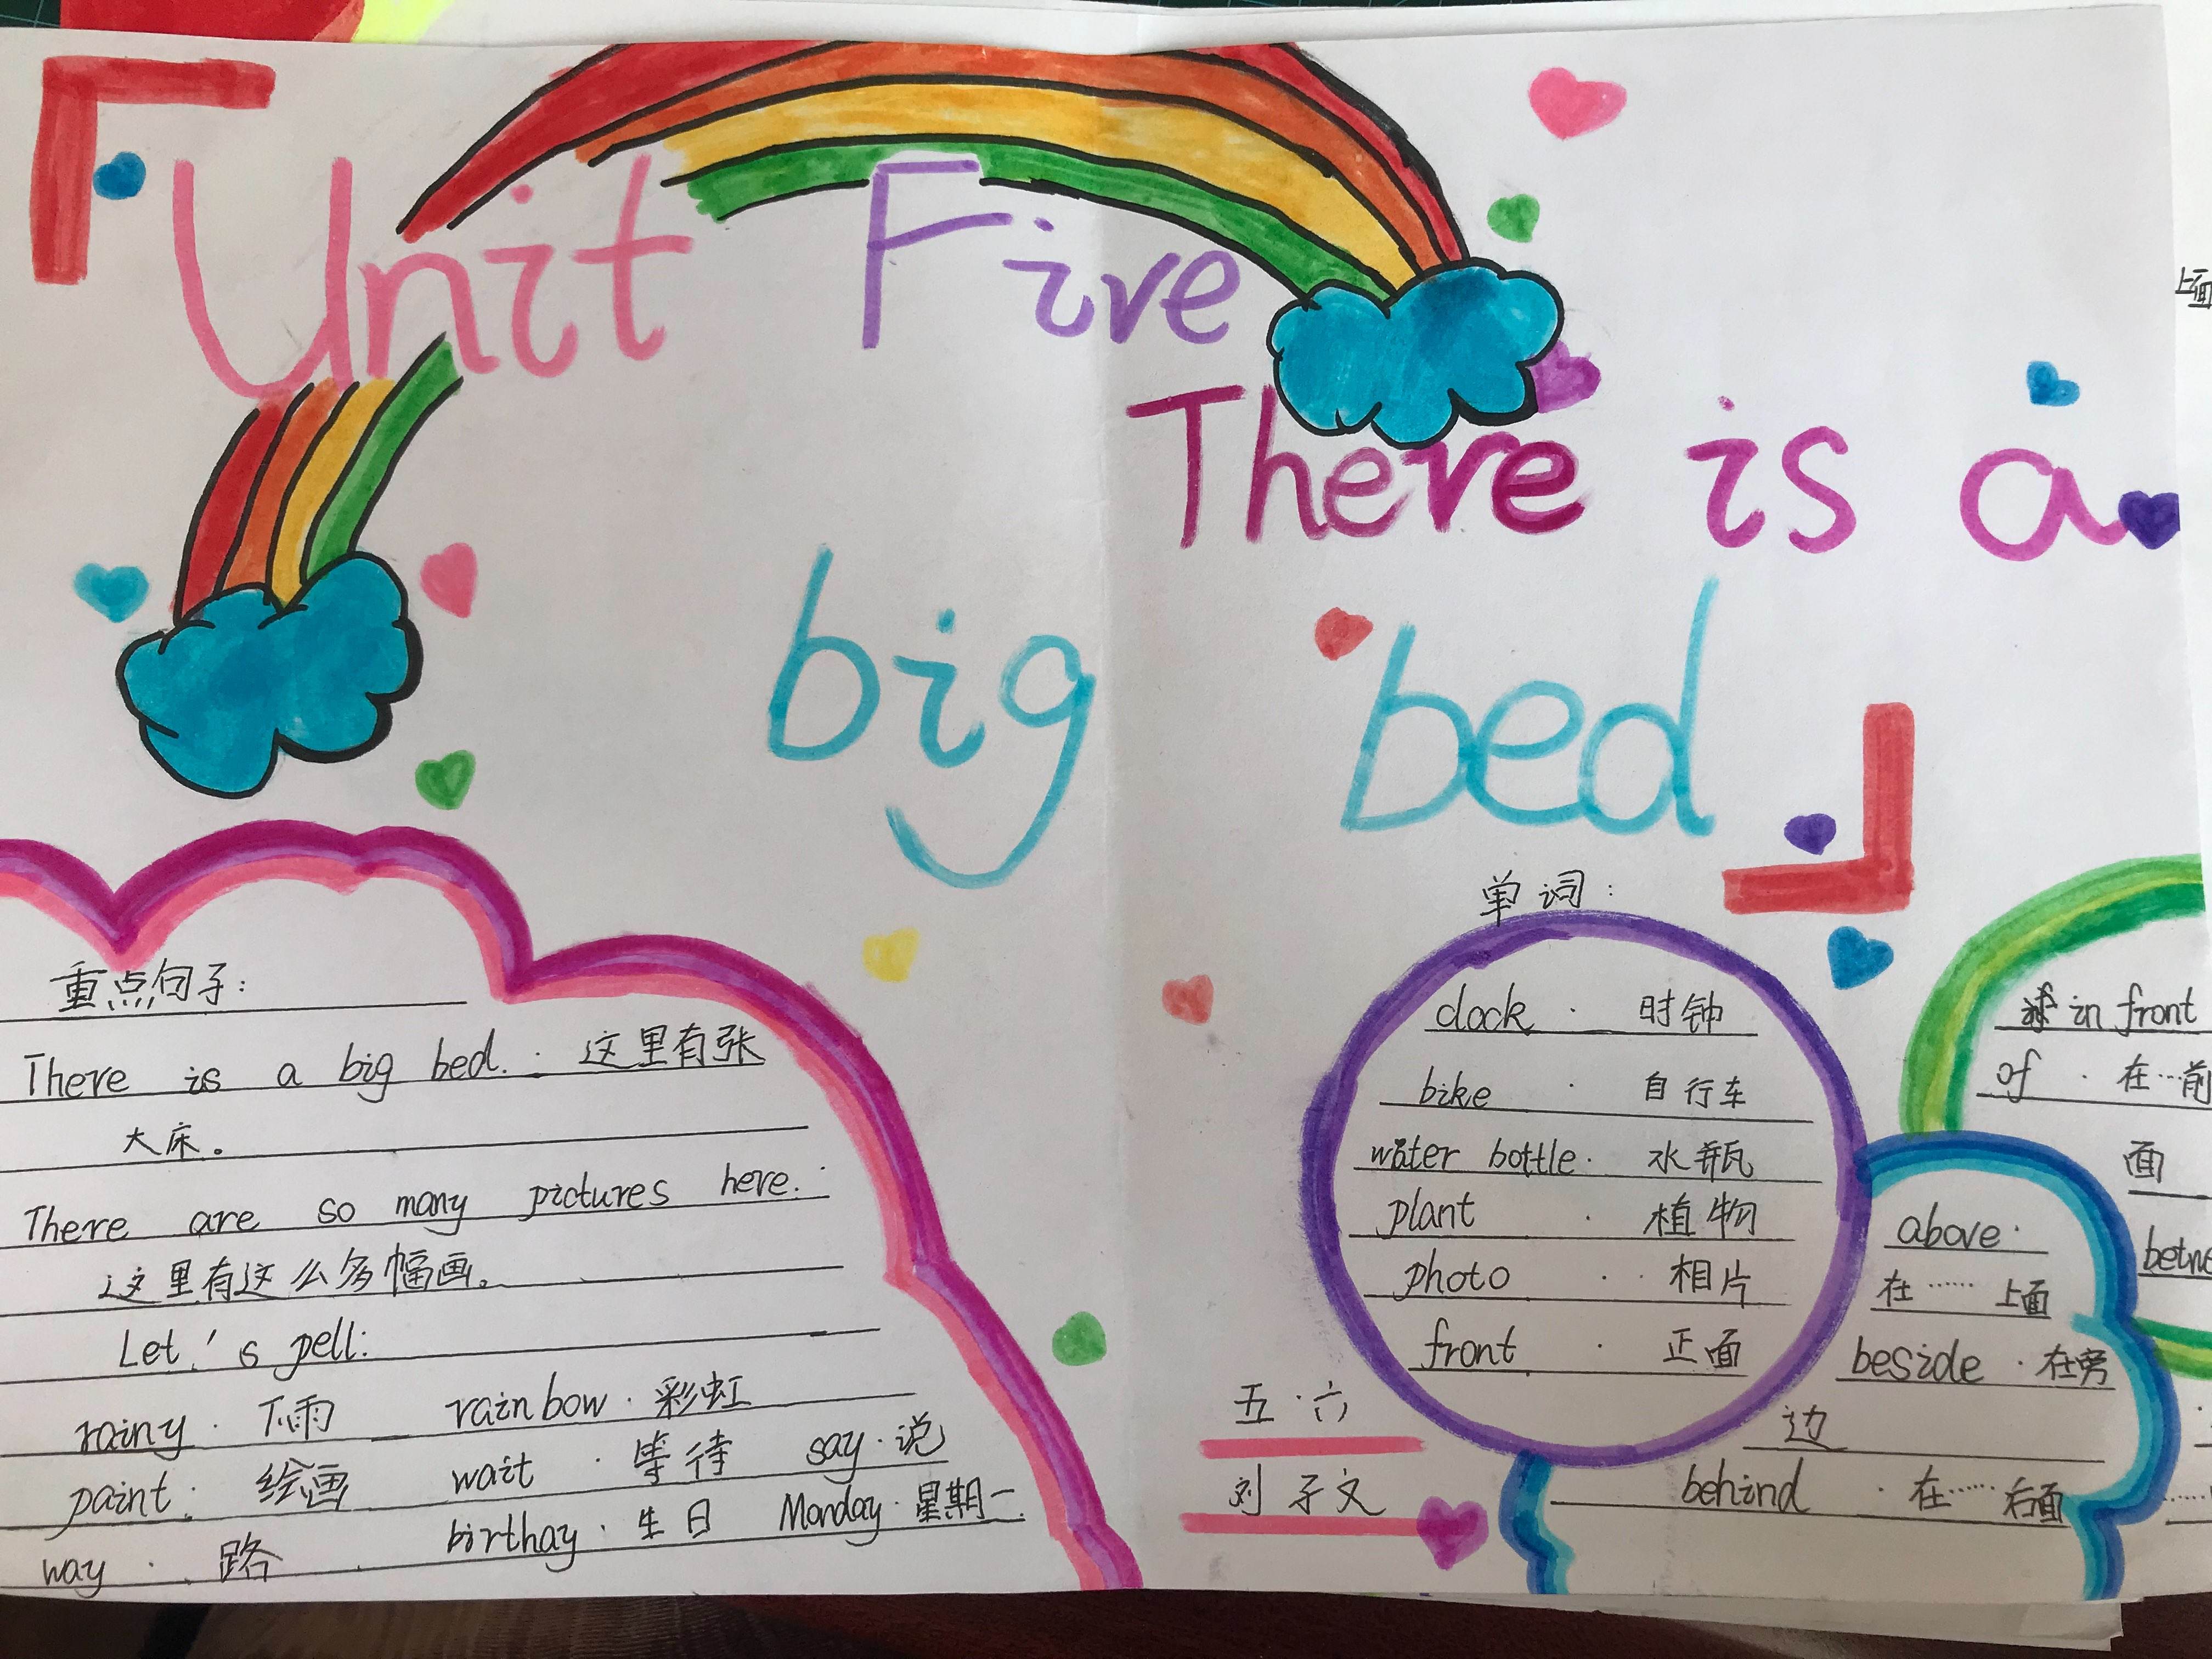 Unit Five
There is a
big bed
重点句子:
There is a big bed. · 这里有张
大床。
There are so many pictures here.
这里有这么多幅画。
Let.'s pell:
rainy · 下雨 rainbow · 彩虹
paint: 绘画 wait · 等待 say · 说
way · 路 birthay · 生日 Monday · 星期一
单词:
clock · 时钟
bike · 自行车
water bottle · 水瓶
plant · 植物
photo · 相片
front · 正面
五·六
刘子文
in front
of · 在…前
面
above ·
在…… 上面
beside · 在旁
边
behind · 在…… 后面
上面